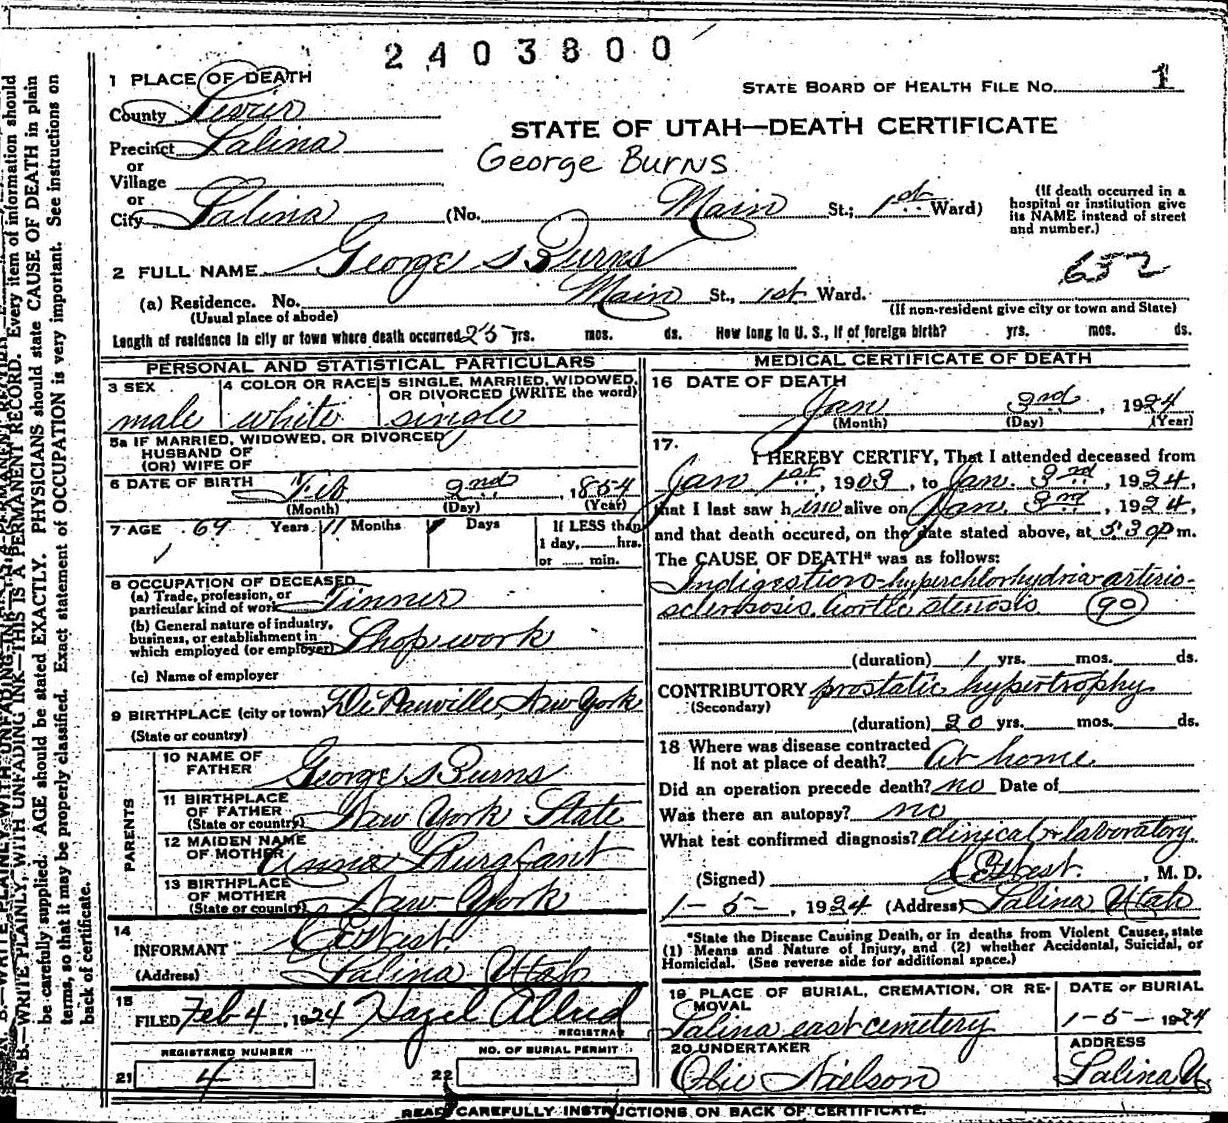 2403800
1 PLACE OF DEATH
STATE BOARD OF HEALTH FILE No. 1
County Sevier
STATE OF UTAH—DEATH CERTIFICATE
Precinct Salina
George Burns
or
Village
or
City Salina (No. Main St.; 1st Ward)
(If death occurred in a hospital or institution give its NAME instead of street and number.)
2 FULL NAME George S Burns
652
(a) Residence. No. Main St., 1st Ward.
(Usual place of abode)
(If non-resident give city or town and State)
Length of residence in city or town where death occurred 25 yrs. mos. ds. How long in U. S., if of foreign birth? yrs. mos. ds.
PERSONAL AND STATISTICAL PARTICULARS
3 SEX male
4 COLOR OR RACE white
5 SINGLE, MARRIED, WIDOWED, OR DIVORCED (WRITE the word) single
5a IF MARRIED, WIDOWED, OR DIVORCED
HUSBAND OF
(OR) WIFE OF
6 DATE OF BIRTH Feb 2nd, 1854
(Month) (Day) (Year)
7 AGE 69 Years 11 Months Days
If LESS than 1 day, hrs. or min.
8 OCCUPATION OF DECEASED
(a) Trade, profession, or particular kind of work Tinner
(b) General nature of industry, business, or establishment in which employed (or employer) Shop work
(c) Name of employer
9 BIRTHPLACE (city or town) New York
(State or country)
PARENTS
10 NAME OF FATHER George S Burns
11 BIRTHPLACE OF FATHER (State or country) New York State
12 MAIDEN NAME OF MOTHER
13 BIRTHPLACE OF MOTHER (State or country) New York
14
INFORMANT
(Address) Salina Utah
15
FILED Feb 4, 1924 Hazel Allred
REGISTRAR
REGISTERED NUMBER
21 4
NO. OF BURIAL PERMIT
22
MEDICAL CERTIFICATE OF DEATH
16 DATE OF DEATH
Jan 3nd, 1924
(Month) (Day) (Year)
17.
I HEREBY CERTIFY, That I attended deceased from
Jan 1st, 1909, to Jan. 3nd, 1924,
that I last saw him alive on Jan. 3nd, 1924,
and that death occured, on the date stated above, at 5:30 p m.
The CAUSE OF DEATH* was as follows:
Indigestion-hyperchlorhydria-arterio-
sclerosis. Aortic stenosis (90)
(duration) 1 yrs. mos. ds.
CONTRIBUTORY prostatic hypertrophy
(Secondary)
(duration) 20 yrs. mos. ds.
18 Where was disease contracted
If not at place of death? At home
Did an operation precede death? no Date of
Was there an autopsy? no
What test confirmed diagnosis? clinical & laboratory
(Signed) , M. D.
1-5-, 1924 (Address) Salina Utah
*State the Disease Causing Death, or in deaths from Violent Causes, state
(1) Means and Nature of Injury, and (2) whether Accidental, Suicidal, or
Homicidal. (See reverse side for additional space.)
19 PLACE OF BURIAL, CREMATION, OR REMOVAL
Salina east cemetery
DATE OF BURIAL
1-5-1924
20 UNDERTAKER
Olie Nielson
ADDRESS
Salina, U
READ CAREFULLY INSTRUCTIONS ON BACK OF CERTIFICATE.
N. B.—WRITE PLAINLY, WITH UNFADING INK—THIS IS A PERMANENT RECORD. Every item of information should
be carefully supplied. AGE should be stated EXACTLY. PHYSICIANS should state CAUSE OF DEATH in plain
terms, so that it may be properly classified. Exact statement of OCCUPATION is very important. See instructions on
back of certificate.